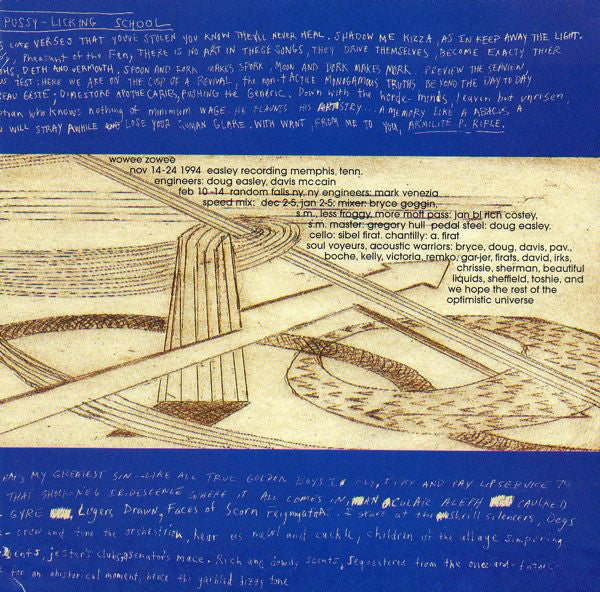 PUSSY-LICKING SCHOOL
LIKE VERSES THAT YOU'VE STOLEN YOU KNOW THEY'LL NEVER HEAL. SHADOW ME KIZZA, AS IN KEEP AWAY THE LIGHT.
Pheasant of the Fen, THERE IS NO ART IN THESE SONGS, THEY DRIVE THEMSELVES, BECOME EXACTLY THIER
DETH AND VERMOUTH, SPOON AND FORK MAKES SPORK, MOON AND DORK MAKES MORK. PREVIEW THE SEAVIEW,
TEST: HERE WE ARE ON THE CUSP OF A REVIVAL, the non-tactile MONOGAMOUS TRUTHS BEYOND THE DAY TO DAY
BEAU GESTE, DIMESTORE APOTHECARIES, PUSHING the Generic. Down with the horde minds, leaven but unrisen,
who knows nothing of minimum wage. HE FLAUNTS HIS ARTISTRY. A MEMORY LIKE A ABACUS A
U WILL STRAY AWHILE LOSE YOUR GLARE. WITH WANT, FROM ME TO YOU, ARMILITE P. RIFLE.
wowee zowee
nov 14-24 1994 easley recording memphis, tenn.
engineers: doug easley, davis mccain
feb 10-14 random falls ny, ny engineers: mark venezia
speed mix: dec 2-5, jan 2-5: mixer: bryce goggin,
s.m., less froggy, more moff pass: jan bl rich costey,
s.m. master: gregory hull pedal steel: doug easley.
cello: sibel firat. chantilly: a. firat
soul voyeurs, acoustic warriors: bryce, doug, davis, pav.,
boche, kelly, victoria, remko, gar-jer, firats, david, irks,
chrissie, sherman, beautiful
liquids, sheffield, toshie, and
we hope the rest of the
optimistic universe
WHAT'S MY GREATEST SIN - LIKE ALL TRUE GOLDEN BOYS I FLY, I TRY AND PAY LIPSERVICE TO
THAT SHOCK-NEG IRIDESCENCE WHERE IT ALL COMES IN, ALEPH CAULKED
GYRE Lugers Drawn, Faces of Scorn I start at the shrill silencers, Dogs
crow and tune the orchestrion, hear us mewl and cackle, children of the village simpering
jester's clubs, senator's mace. Rich and dowdy scents, sequestered from the once-and-future
for an ahistorical moment, hence the garbled dizzy tone